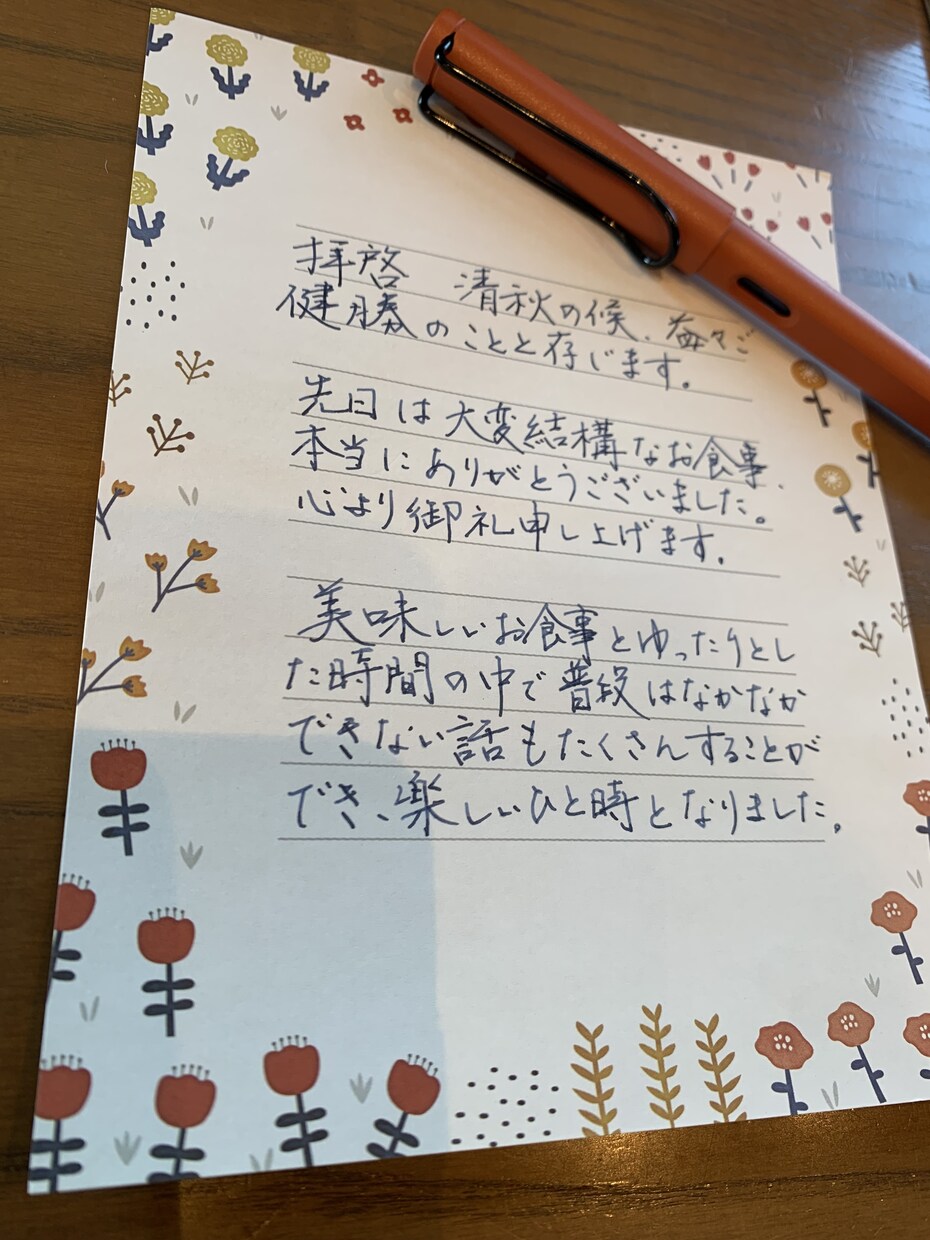 拝啓 清秋の候、益々ご
健勝のことと存じます。
先日は大変結構なお食事、
本当にありがとうございました。
心より御礼申し上げます。
美味しいお食事とゆったりとし
た時間の中で普段はなかなか
できない話もたくさんすることが
でき、楽しいひと時となりました。